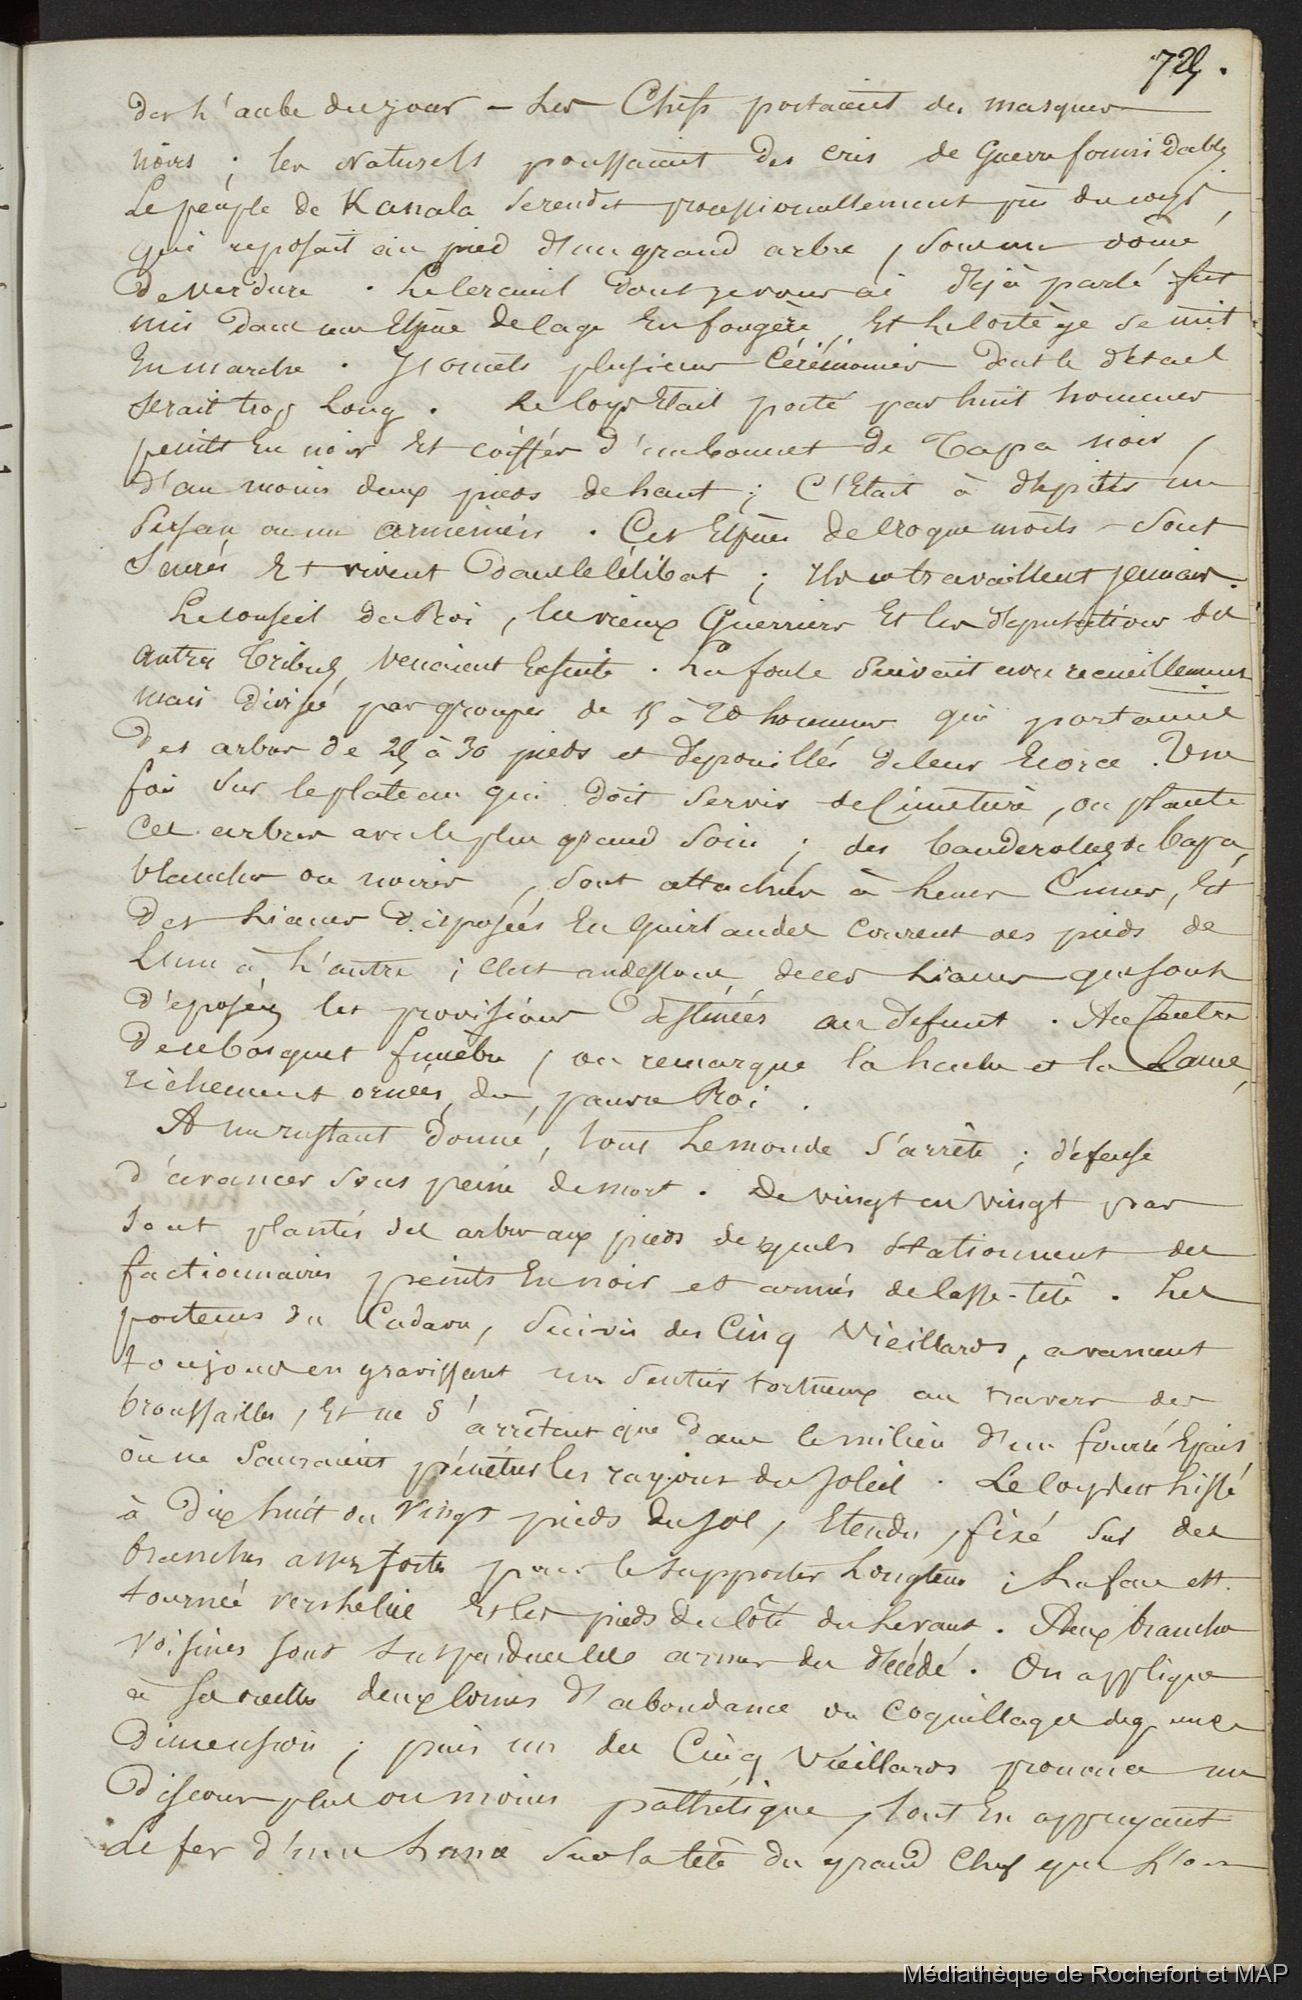 725.
dès l'aube du jour – Les Chefs portaient des masques
noirs ; les Naturels poussaient des cris de Guerre formidables
Le peuple de Kanala se rendit processionnellement près du corps,
qui reposait au pied d'un grand arbre, sous un dôme
de verdure. Le cercueil dont je vous ai déjà parlé fut
mis dans une Espèce de cage En fougère, Et le Cortège se mit
En marche. J'omets plusieurs Cérémonies dont le détail
serait trop long. Le corps Etait porté par huit hommes
peints En noir Et coiffés d'un bonnet de Tapa noir,
d'au moins deux pieds de haut ; C'Etait à dépiter un
Persan ou un arménien. Ces Espèces de croquemorts sont
Sacrés Et vivent dans le Célibat ; Ils ne travaillent jamais.
Le conseil du Roi, les vieux Guerriers Et les députations des
autres Tribus, venaient Ensuite. La foule suivait avec recueillement
mais divisée par groupes de 15 à 20 hommes qui portaient
des arbres de 25 à 30 pieds et dépouillés de leur Ecorce. Une
fois sur le plateau qui doit servir de Cimetière, on plante
ces arbres avec le plus grand soin ; des banderoles de tapa,
blanches ou noires, sont attachées à leurs Cimes, Et
des Lianes disposées En guirlandes courent des pieds de
L'un à L'autre ; c'est au dessous de ces Lianes que sont
déposées les provisions destinées au défunt. Au Centre
de ce bosquet funèbre, on remarque la hache et la Lance,
richement ornées, du pauvre Roi.
A un instant donné, tout Le monde s'arrête ; défense
d'avancer sous peine de mort. De vingt en vingt pas
sont plantés des arbres aux pieds desquels stationnent des
factionnaires peints En noir et armés de Casse-tête. Les
porteurs du Cadavre, suivis des Cinq Vieillards, avancent
toujours en gravissant un sentier tortueux au travers des
broussailles, Et ne s'arrêtent que dans le milieu d'un fourré Epais
où ne sauraient pénétrer les rayons du soleil. Le corps est hissé
à dix huit ou vingt pieds du sol, Etendu, fixé sur des
branches assez fortes pour le supporter Longtems ; La face est
tournée vers le Ciel Et les pieds du côté du Levant. Aux branches
voisines sont suspendues les armes du décédé. On applique
à ses oreilles deux cornes d'abondance ou coquillages de g^de
Dimension ; puis un des Cinq Vieillards prononce un
Discours plus ou moins pathétique, tout En appuyant
Le fer d'une Lance sur la tête du grand Chef que L'on
Médiathèque de Rochefort et MAP